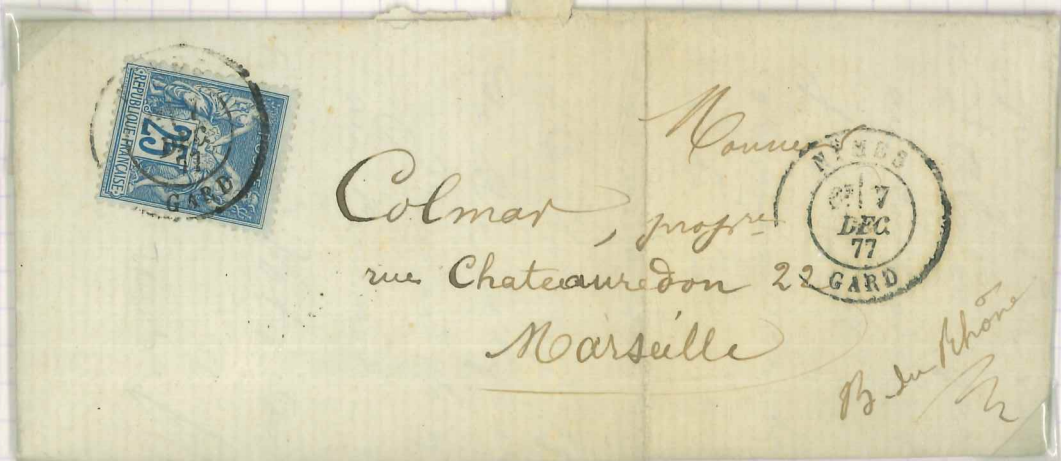 REPUBLIQUE FRANÇAISE
25
GARD
NIMES
7
DEC.
77
GARD
Colmar, propre
rue Chateauredon 22
Marseille
B du Rhône